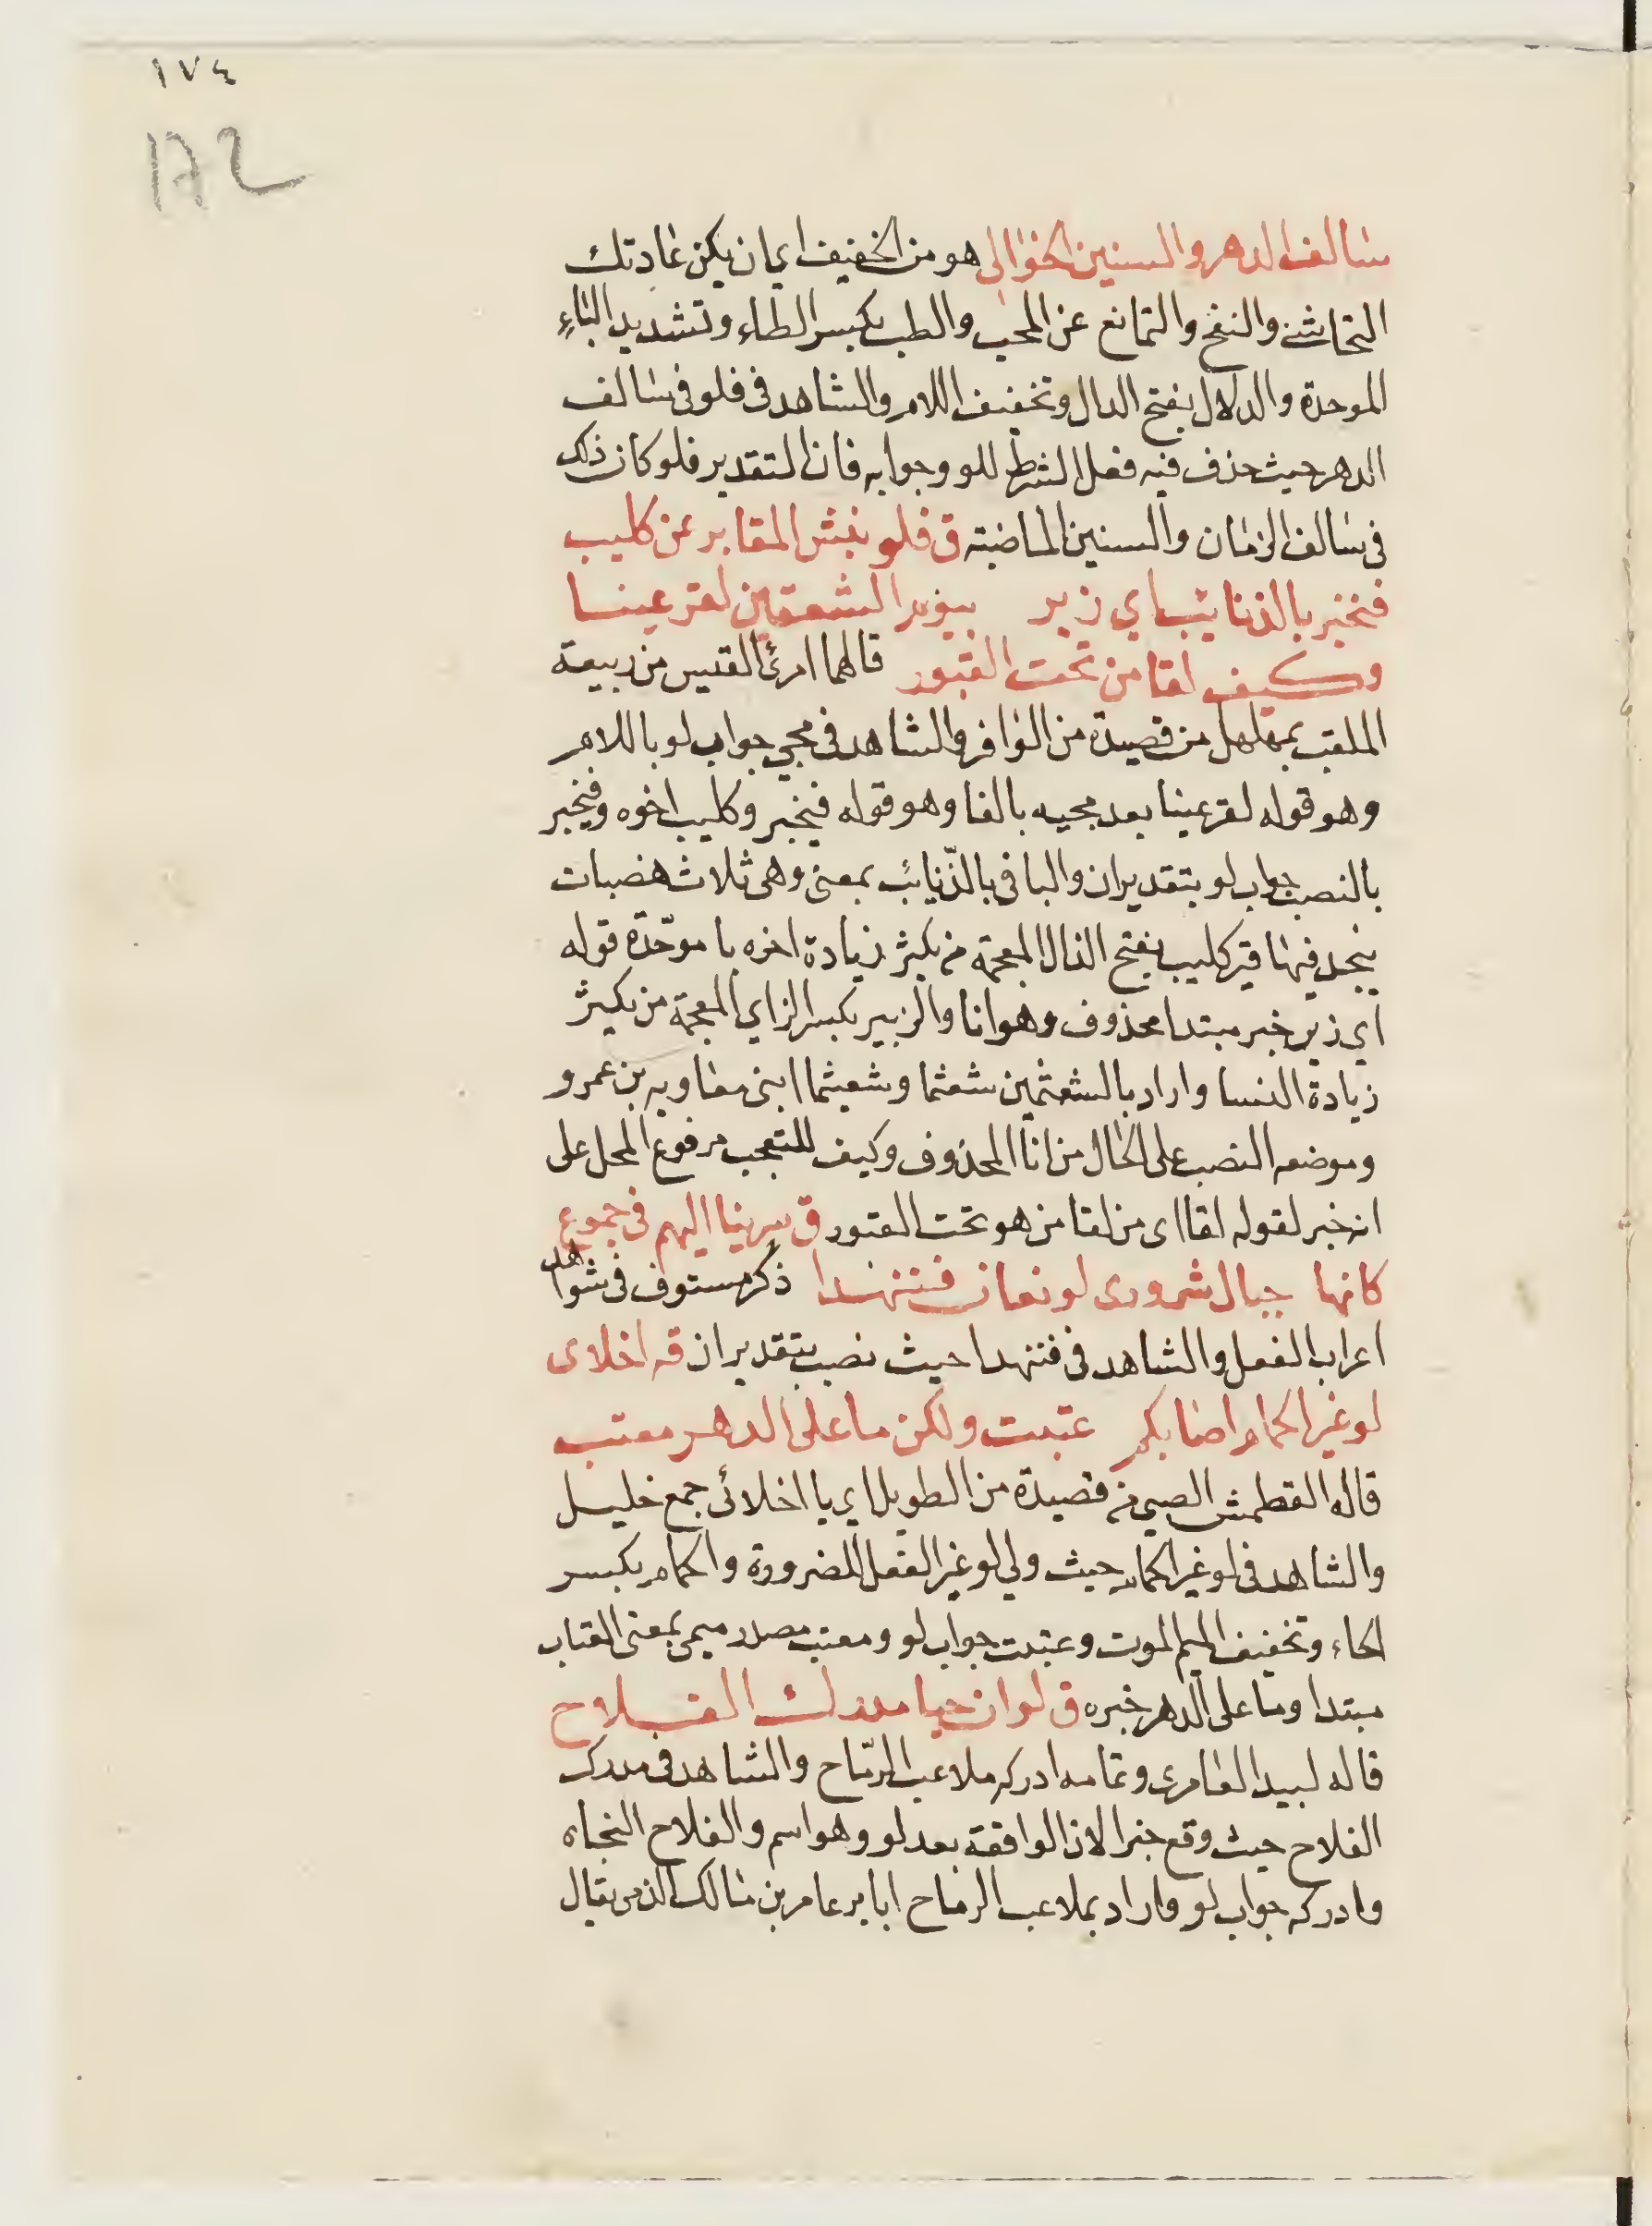 ١٧٤
١٨٢
سالف الدهر والسنين الخوالى هو من الخفيف اى ان يكن عادتك
التحاشى والنفح والتمانع عن المحب والطب بكسر الطاء وتشديد الباء
الموحدة والدلال بفتح الدال وتخفيف اللام والشاهد فى فلو فى سالف
الدهر حيث حذف فيه فعل الشرط للو وجوابه فان التقدير فلو كان ذلك
فى سالف الزمان والسنين الماضية ق فلو نبش المقابر عن كليب
فنخبر بالذنائب اي زير بيوم الشعثمين لقر عينا
وكيف لقا من تحت القبور قالهما امرئ القيس من ربيعة
الملقب بمهلهل من قصيدة من الوافر والشاهد فى مجي جواب لو باللام
وهو قوله لقر عينا بعد مجيه بالفا وهو قوله فيخبر وكليب اخوه وفيخبر
بالنصب جواب لو بتقدير ان والبا فى بالذّنايئب بمعنى وهى ثلاث هضبات
بنجد فيها قبر كليب بفتح الذال المعجمة من بكثر زيادة اخره با موحّدة قوله
اي زير خبر مبتدا محذوف وهو انا والزبير بكسر الزاي المعجمة من بكيثر
زيادة النسا واراد بالشعثمين شعثما وشعيثما ابنى معاويه بن عمرو
وموضعه النصب على الحال من انا المحذوف وكيف للتعجب مرفوع المحل على
انه خبر لقوله لقا اى من لقا من هو تحت القبور ق سرينا اليهم فى جموع
كانها جبال شرورى لو نعان فتنهدا ذكر مستوف فى شواهد
اعراب الفعل والشاهد فى فتنهدا حيث نصب بتقدير ان قه اخلاى
لو غير الحمام اصابكم عتبت ولكن ما على الدهر معتب
قاله القطمش الصبي من قصيدة من الطويل اى يا اخلائى جمع خليل
والشاهد فى لو غير الحمام حيث ولي لو غير الفعل للضرورة والحمام بكسر
الحاء وتخفيف الميم الموت وعتبت جواب لو ومعتب مصدر ميمى بمعنى العتاب
مبتدا وما على الدهر خبره ق لو ان حيا مدرك الفلاح
قاله لبيد العامرى وتمامه ادركه ملاعب الرّماح والشاهد فى مدرك
الفلاح حيث وقع خبرا لان الواقعة بعد لو وهو اسم والفلاح النجاه
وادركه جواب لو واراد بملاعب الرماح ابا بر عامر بن مالك الذى يقال